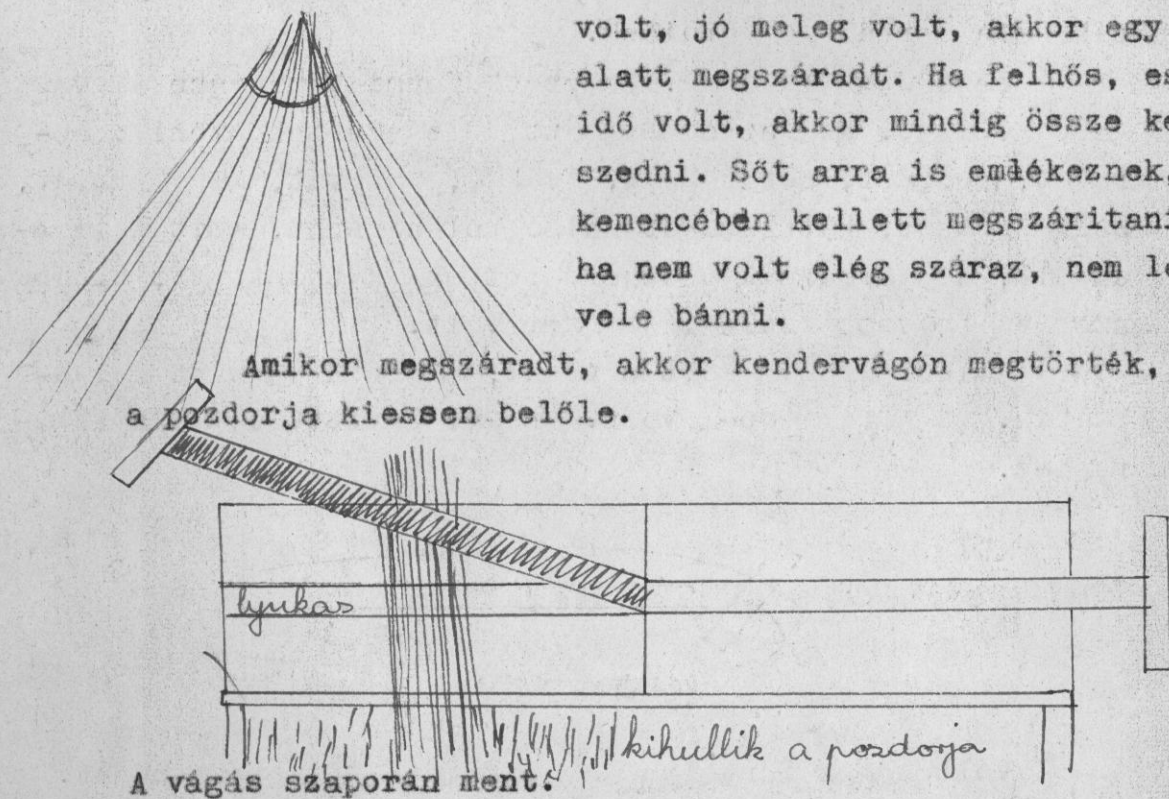 volt, jó meleg volt, akkor egy
alatt megszáradt. Ha felhős, es
idő volt, akkor mindig össze ke
szedni. Sőt arra is emlékeznek,
kemencében kellett megszáritani
ha nem volt elég száraz, nem le
vele bánni.
Amikor megszáradt, akkor kendervágón megtörték,
a pozdorja kiessen belőle.
lyukas
kihullik a pozdorja
A vágás szaporán ment.